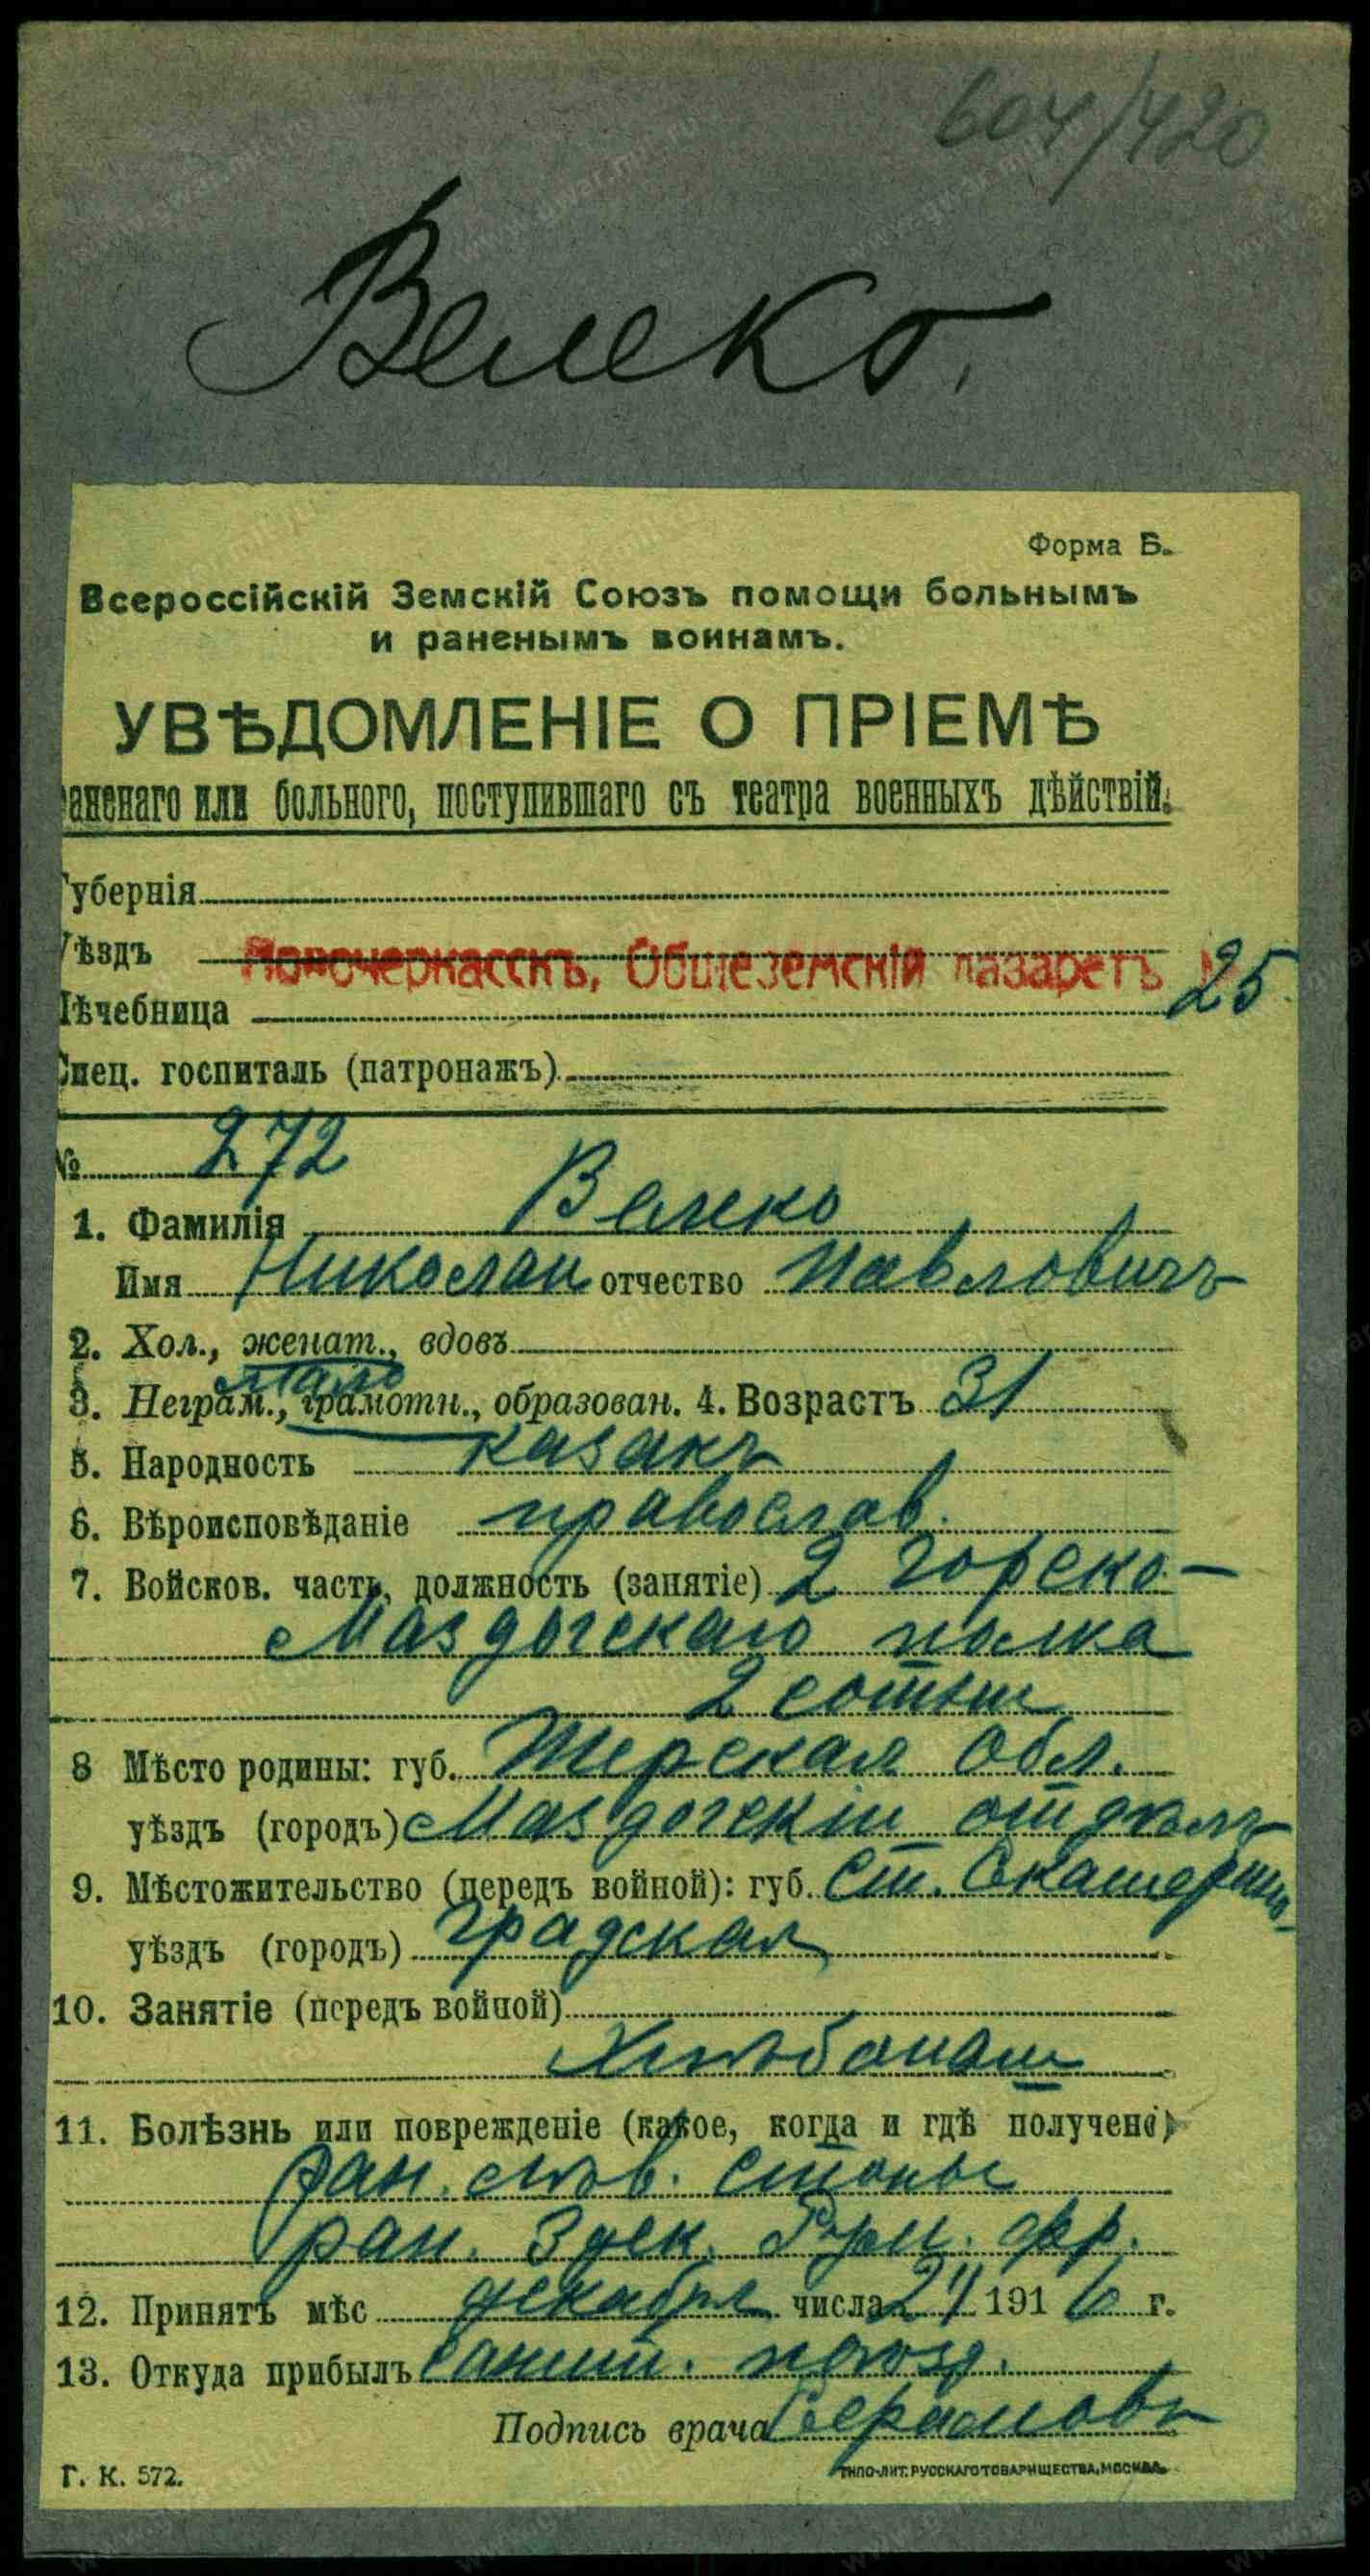 604/420
Велеко.
Форма Б.
Всероссійскій Земскій Союзъ помощи больнымъ
и раненымъ воинамъ.
УВѢДОМЛЕНІЕ О ПРІЕМѢ
раненаго или больного, поступившаго съ театра военныхъ дѣйствій.
Губернія
Уѣздъ
Новочеркасскъ, Общеземскій лазаретъ № 25
Лѣчебница
Спец. госпиталь (патронажъ)
№ 272
1. Фамилія Велеко
Имя Николай отчество Павловичъ
2. Хол., женат., вдовъ
мало
3. Неграм., грамотн., образован. 4. Возрастъ 31
5. Народность казакъ
6. Вѣроисповѣданіе православ.
7. Войсков. часть, должность (занятіе) 2 Горско-
Маздогскаго полка
2 сотни
8 Мѣсто родины: губ. Терская Обл.
уѣздъ (городъ) Маздогскій отдѣлъ
9. Мѣстожительство (передъ войной): губ. Ст. Екатерино-
уѣздъ (городъ) градская
10. Занятіе (передъ войной)
Хлѣбопаш
11. Болѣзнь или поврежденіе (какое, когда и гдѣ получено)
ран. лѣв. стопы
ран. 3 дек. Рум. фр.
12. Принятъ мѣс декабря числа 21 1916 г.
13. Откуда прибылъ Санит. поѣзд.
Подпись врача
Г. К. 572.
ТИПО-ЛИТ. РУССКАГО ТОВАРИЩЕСТВА, МОСКВА.
www.gwar.mil.ru